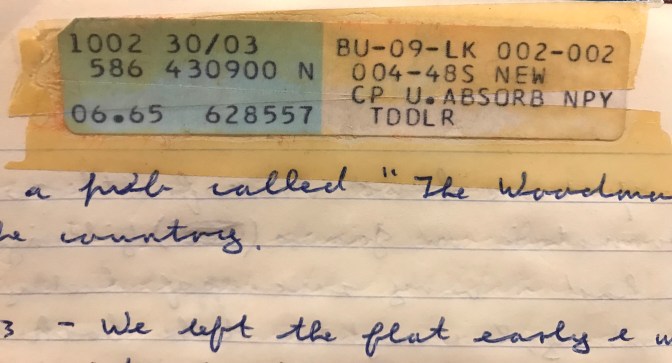 1002 30/03 BU-09-LK 002-002
586 430900 N 004-48S NEW
CP U.ABSORB NPY
06.65 628557 TODLR
a pub called "The Woodma
he country.
3 - We left the flat early &